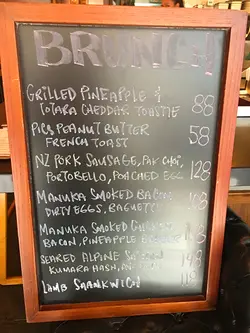 BRUNCH
GRILLED PINEAPPLE &
TOTARA CHEDDAR TOASTIE 88
PICS PEANUT BUTTER
FRENCH TOAST 58
NZ PORK SAUSAGE, PAK CHOI,
PORTOBELLO, POACHED EGG 128
MANUKA SMOKED BACON
DIRTY EGGS, BAGUETTE
MANUKA SMOKED
BACON, PINEAPPLE
SEARED ALPINE
KUMARA HASH,
LAMB